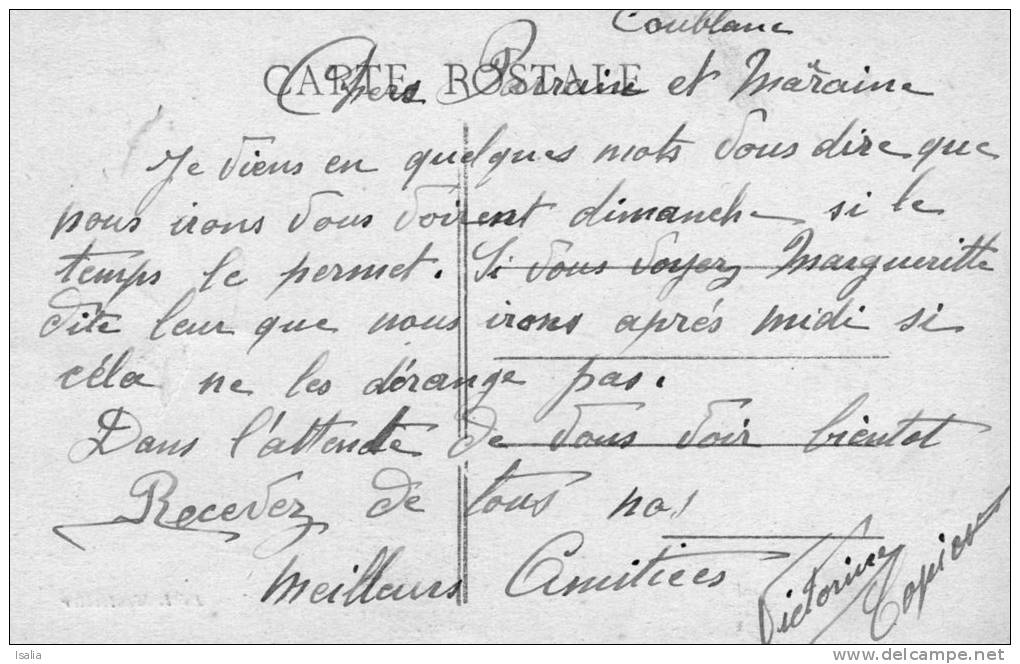 Coublanc
CARTE POSTALE
Chers Parrain et Marraine
Je viens en quelques mots vous dire que
nous irons vous voirent dimanche si le
temps le permet. Si vous voyez Margueritte
dite leur que nous irons aprés midi si
céla ne les dérange pas.
Dans l'attente de vous voir bientot
Recevez de tous nos
meilleurs Amitiées
Victorine
Isalia
delcampe.net